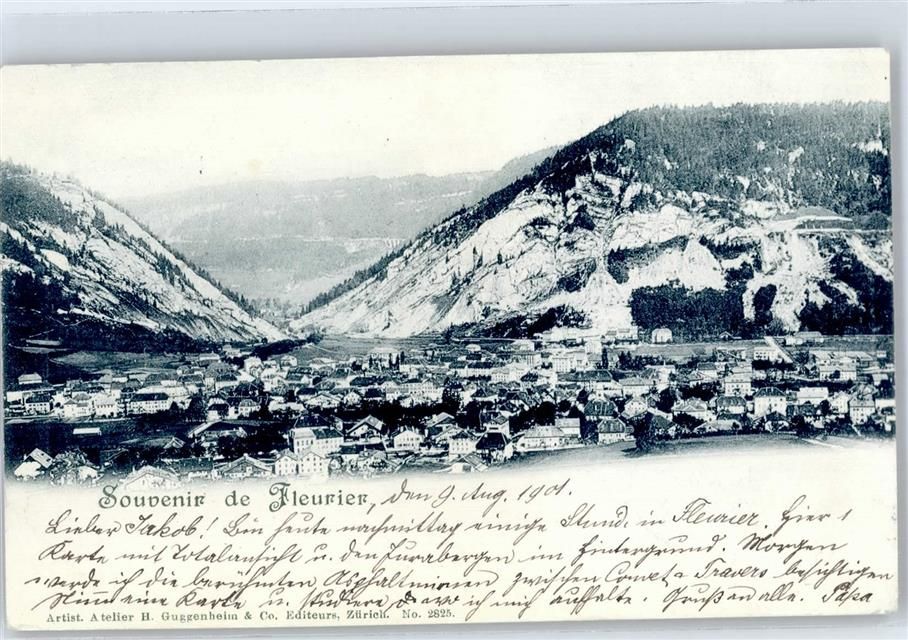 Souvenir de Fleurier, den 9. Aug. 1901.
Lieber Jakob! Bin heute nachmittag einige Stund. in Fleurier. Hier 1
Karte mit Totalansicht u. den Jurabergen im Hintergrund. Morgen
werde ich die berühmten Asphaltminen zwischen Couvet u Travers besichtigen
Nimm eine Karte u. studiere wo ich mich aufhalte. Gruß an alle. Papa
Artist. Atelier H. Guggenheim & Co. Editeurs, Zürich. No. 2825.